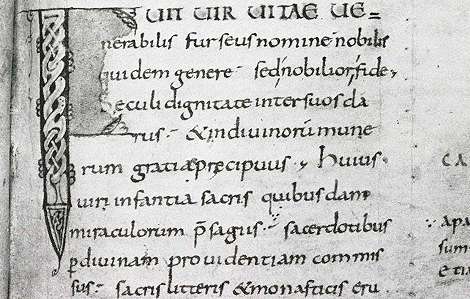 FUIT UIR UITAE UE=
nerabilis furseus nomine nobilis
quidem genere sed nobilior fide,
Seculi dignitate inter suos cla
rus. & in divinorū mune
rum gratia precipuus, Huius.
uiri infantia sacris quibusdam
miraculorum p̄sagiis. sacerdotibus
ꝑ divinam providentiam commis
sus. sacris litteris & monasticis eru
CA
APA
sum
etia